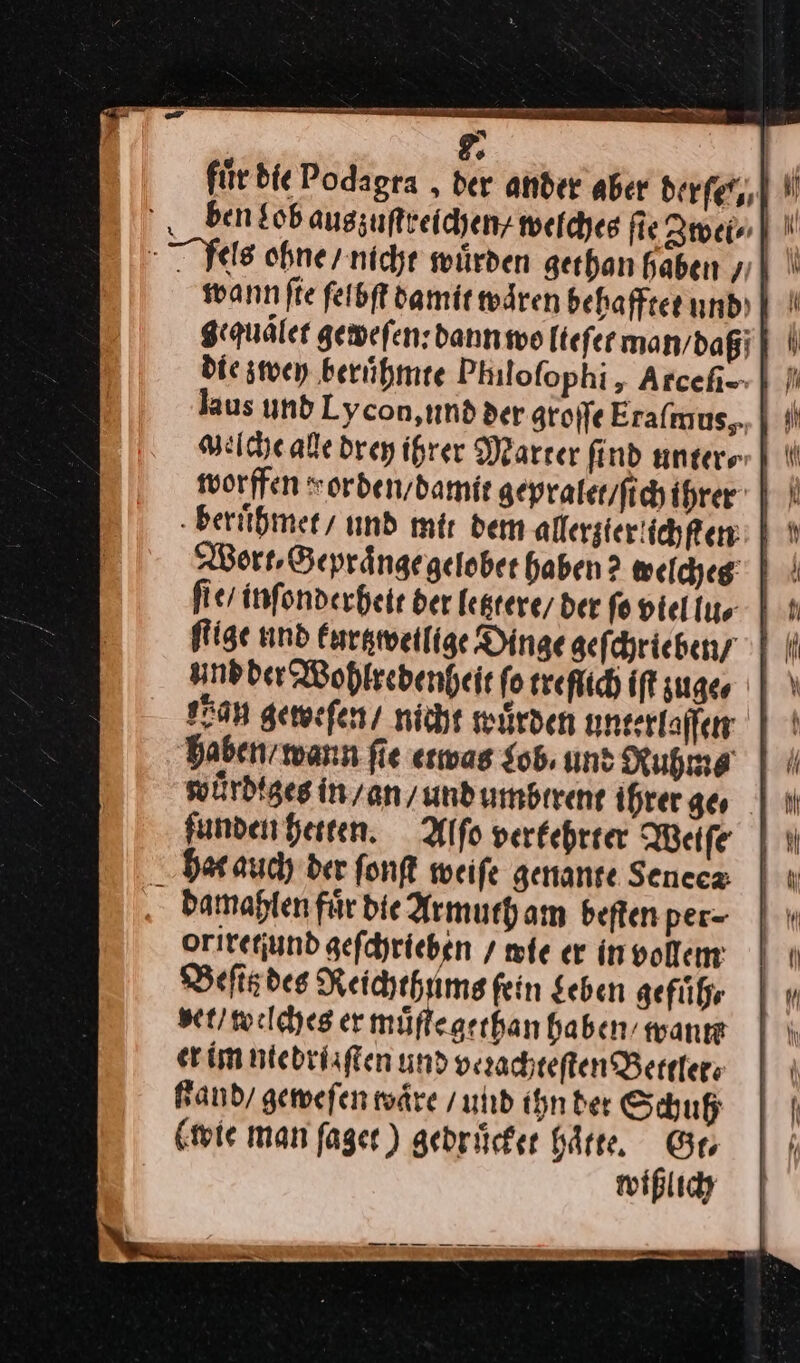 8.
für die Podagra , der ander aber derſel⸗
ben Lob auszuſtreichen / welches ſie Zwei⸗
fels ohne / nicht würden gethan haben /
wann ſie ſelbſt damit wären behafftet und
gequålet geweſen: dann wo lieſet man / daß
die zwey berühmte Philoſophi , Arceſi-
laus und Lycon, und der groſſe Eraſmus,
welche alle drey ihrer Marter ſind unter⸗
worffen worden / damit gepralet / ſich ihrer
berühmet / und mit dem allerzierlichſten
Wort⸗Gepränge gelobet haben? welches
ſie / inſonderheit der letztere / der ſo viel lu⸗
ſtige und kurtzweilige Dinge geſchrieben /
und der Wohlredenheit ſo treflich iſt zuge⸗
than geweſen / nicht würden unterlaſſen
haben / wann ſie etwas Lob⸗ und Ruhms
würdiges in / an / und umbtrent ihrer ge⸗
funden hetten. Alſo verkehrter Weiſe
hat auch der ſonſt weiſe genante Seneca
damahlen für die Armuth am beſten per-
oriret / und geſchrieben / wie er in vollem
Beſitz des Reichthums ſein Leben gefüh⸗
ret / welches er müſte gethan haben / wann
er im niedrigſten und verachteſten Bettler⸗
ſtand / geweſen wäre / und ihn der Schuh
(wie man ſaget) gedrücket hätte. Ge⸗
wißlich